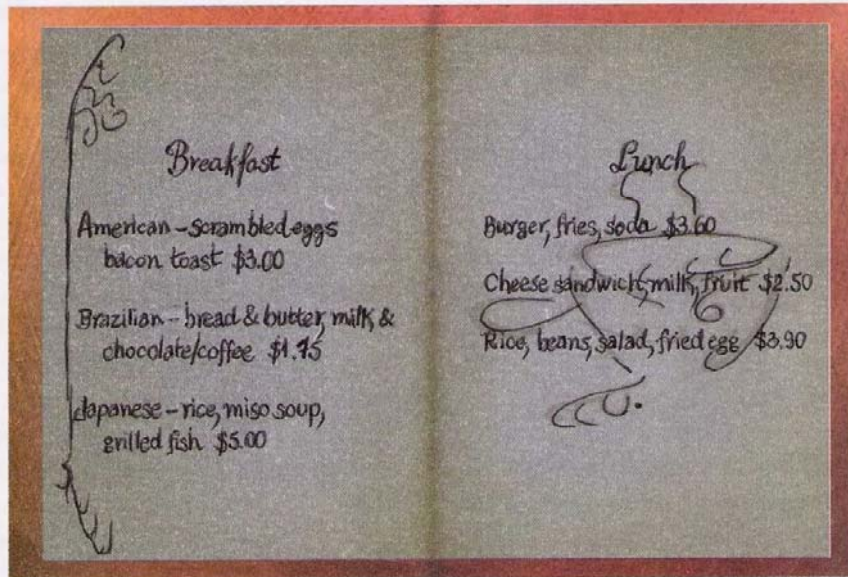 Breakfast
American – scrambled eggs
bacon toast $3.00
Brazilian – bread & butter, milk &
chocolate/coffee $1.75
Japanese – rice, miso soup,
grilled fish $5.00
Lunch
Burger, fries, soda $3.60
Cheese sandwich, milk, fruit $2.50
Rice, beans, salad, fried egg $3.90